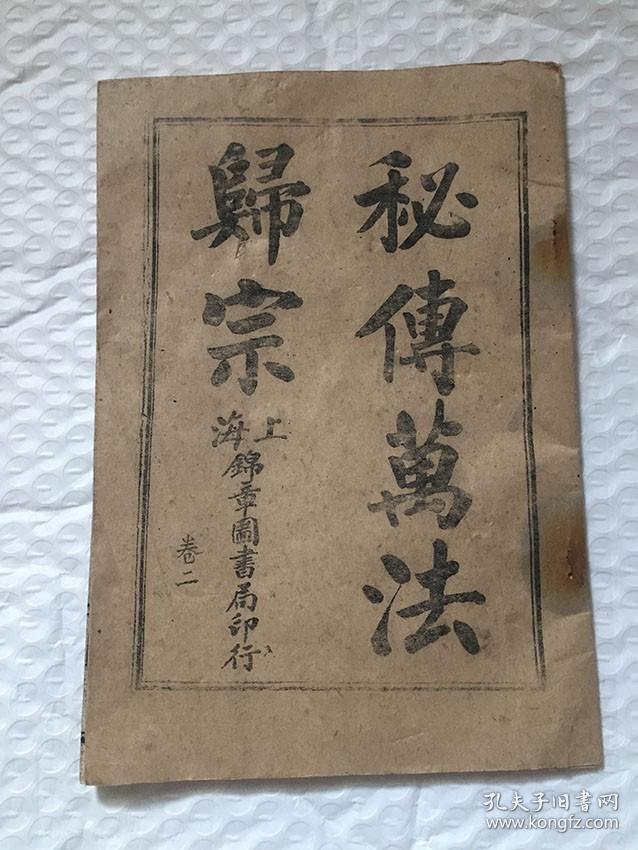 秘傳萬法
歸宗
上海
錦章圖書局印行
卷二
孔夫子旧书网
www.kongfz.com